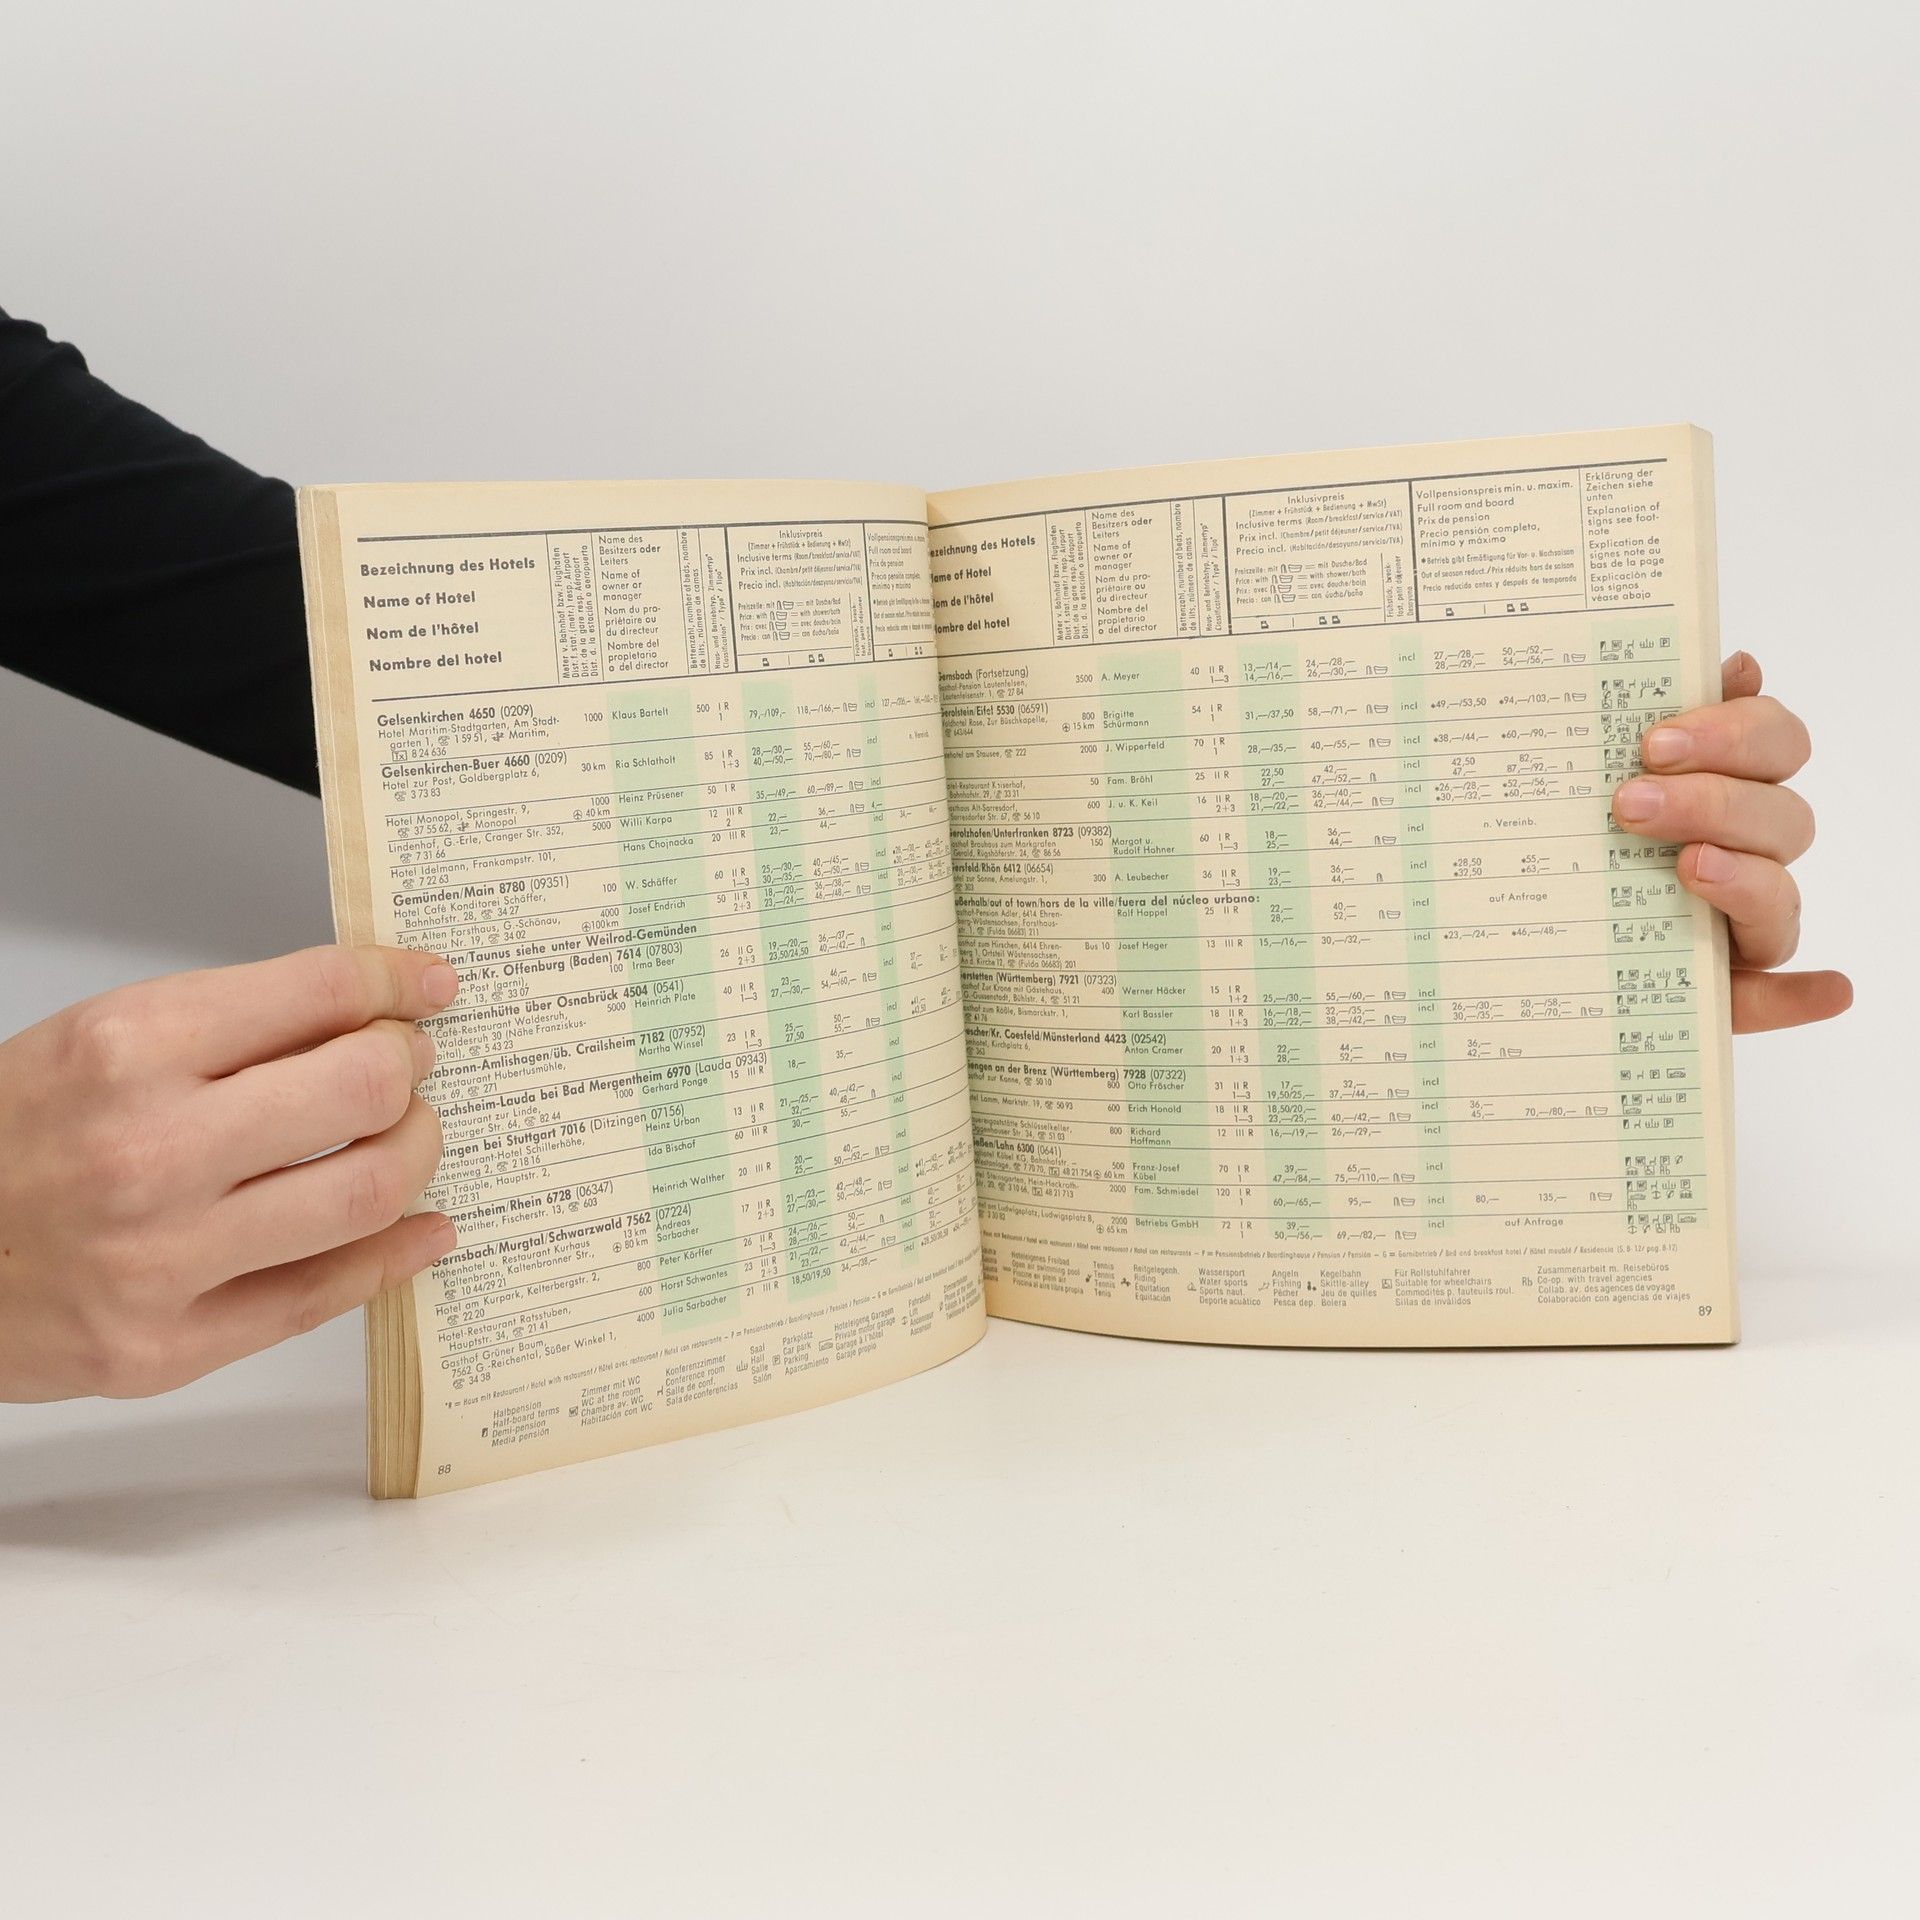 Bezeichnung des Hotels
Name of Hotel
Nom de l'hôtel
Nombre del hotel
Meter v. Bahnhof bzw. Flughafen
Dist. f. stat. (metr.) resp. Airport
Dist. de la gare resp. Aéroport
Dist. d. la estación o aeropuerto
Name des
Besitzers oder
Leiters
Name of
owner or
manager
Nom du pro-
priétaire ou
du directeur
Nombre del
propietario
o del director
Bettenzahl, number of beds, nombre
de lits, número de camas
Haus- und Betriebstyp, Zimmertyp*
Classification* / Type* / Tipo*
Inklusivpreis
(Zimmer + Frühstück + Bedienung + MwSt)
Inclusive terms (Room/breakfast/service/VAT)
Prix incl. (Chambre/petit déjeuner/service/TVA)
Precio incl. (Habitación/desayuno/servicio/TVA)
Gelsenkirchen 4650 (0209)
Hotel Maritim-Stadtgarten, Am Stadt- 1000 Klaus Bartelt 500 I R 79,—/109,— 118,—/166,— incl
garten 1, 1 59 51, Maritim, 1
Tx 8 24 636
Gelsenkirchen-Buer 4660 (0209)
Hotel zur Post, Goldbergplatz 6, 30 km Ria Schlatholt 85 I R 28,—/30,— 55,—/60,— incl
3 73 83 1+3 40,—/50,— 70,—/80,—
Hotel Monopol, Springestr. 9, 1000 Heinz Prüsener 50 I R 35,—/49,— 60,—/89,— incl
37 55 62, Monopol 40 km
Lindenhof, G.-Erle, Cranger Str. 352, 5000 Willi Karpa 12 III R 22,— 36,—
7 31 66 2
Hotel Idelmann, Frankampstr. 101, Hans Chojnacka 20 III R 23,— 44,—
7 22 63
Gemünden/Main 8780 (09351)
Hotel Café Konditorei Schäffer, 100 W. Schäffer 60 II R 25,—/30,— 40,—/45,— incl
Bahnhofstr. 28, 34 27 1—3 30,—/35,— 45,—/50,—
Zum Alten Forsthaus, G.-Schönau, 4000 Josef Endrich 50 II R 18,—/20,— 36,—/38,— incl
Schönau Nr. 19, 34 02 100 km 2+3 23,—/24,— 46,—/48,—
/Taunus siehe unter Weilrod-Gemünden
/Kr. Offenburg (Baden) 7614 (07803)
-Post (garni), 100 Irma Beer 26 II G 19,—/20,— 36,—/37,—
13, 33 07 2+3 23,50/24,50 40,—/42,—
über Osnabrück 4504 (0541)
-Café-Restaurant Waldesruh, 5000 Heinrich Plate 40 II R 23,— 46,— incl
Waldesruh 30 (Nähe Franziskus- 1—3 27,—/30,— 54,—/60,—
5 43 23
-Amlishagen/üb. Crailsheim 7182 (07952)
Restaurant Hubertusmühle, Martha Winsel 23 I R 25,— 50,— incl
Haus 69, 271 1—3 27,50 55,—
-Lauda bei Bad Mergentheim 6970 (Lauda 09343)
Restaurant zur Linde, 1000 Gerhard Ponge 15 III R 18,— 35,—
Str. 64, 82 44
bei Stuttgart 7016 (Ditzingen 07156)
-Hotel Schillerhöhe, Heinz Urban 13 II R 21,—/25,— 40,—/42,— incl
2, 2 18 16 3 32,— 48,—
Hotel Träuble, Hauptstr. 2, Ida Bischof 60 III R 30,— 55,—
2 22 31
/Rhein 6728 (06347)
Walther, Fischerstr. 13, 603 Heinrich Walther 20 III R 20,— 40,— incl
25,— 50,—/52,—
Gernsbach/Murgtal/Schwarzwald 7562 (07224)
Höhenhotel u. Restaurant Kurhaus 13 km Andreas 17 II R 21,—/23,— 42,—/48,— incl
Kaltenbronn, Kaltenbronner Str., 80 km Sarbacher 2+3 27,—/30,— 50,—/56,—
10 44/29 21
Hotel am Kurpark, Kelterbergstr. 2, 800 Peter Körffer 26 II R 24,—/26,— 50,— incl
22 20 1—3 28,—/30,— 54,—
Hotel-Restaurant Ratsstuben, 600 Horst Schwantes 23 III R 21,—/22,— 42,—/44,— incl
Hauptstr. 34, 21 41 2+3 23,— 46,—
Gasthof Grüner Baum, 4000 Julia Sarbacher 21 III R 18,50/19,50 34,—/38,— incl
7562 G.-Reichental, Süßer Winkel 1,
34 38
*R = Haus mit Restaurant / Hotel with restaurant / Hôtel avec restaurant / Hotel con restaurante – P = Pensionsbetrieb / Boardinghouse / Pension / Pensión – G = Garnibetrieb
Halbpension
Half-board terms
Demi-pension
Media pensión
Zimmer mit WC
WC at the room
Chambre av. WC
Habitación con WC
Konferenzzimmer
Conference room
Salle de conf.
Sala de conferencias
Saal
Hall
Salle
Salón
Parkplatz
Car park
Parking
Aparcamiento
Hoteleigene Garagen
Private motor garage
Garage à l'hôtel
Garaje propio
Fahrstuhl
Lift
Ascenseur
Ascensor
88
Bezeichnung des Hotels
Name of Hotel
Nom de l'hôtel
Nombre del hotel
Meter v. Bahnhof bzw. Flughafen
Dist. f. stat. (metr.) resp. Airport
Dist. de la gare resp. Aéroport
Dist. d. la estación o aeropuerto
Name des
Besitzers oder
Leiters
Name of
owner or
manager
Nom du pro-
priétaire ou
du directeur
Nombre del
o del director
Bettenzahl, number of beds, nombre
de lits, número de camas
Haus- und Betriebstyp, Zimmertyp*
Classification* / Type* / Tipo*
Inklusivpreis
(Zimmer + Frühstück + Bedienung + MwSt)
Inclusive terms (Room/breakfast/service/VAT)
Prix incl. (Chambre/petit déjeuner/service/TVA)
Precio incl. (Habitación/desayuno/servicio/TVA)
Preiszelle: mit = mit Dusche/Bad
Price: with = with shower/bath
Prix: avec = avec douche/bain
Precio: con = con ducha/baño
Vollpensionspreis min. u. maxim.
Full room and board
Prix de pension
Precio pensión completa,
mínimo y máximo
*Betrieb gibt Ermäßigung für Vor- u. Nachsaison
Out of season reduct./Prix réduits hors de saison
Precio reducido antes y después de temporada
Erklärung der
Zeichen siehe
unten
Explanation of
signs see foot-
note
Explication de
signes note au
bas de la page
Explicación de
los signos
véase abajo
Gernsbach (Fortsetzung)
Gasthof-Pension Lautenfelsen, 3500 A. Meyer 40 II R 13,—/14,— 24,—/28,— incl 27,—/28,— 50,—/52,—
Lautenfelsenstr. 1, 27 84 1—3 14,—/16,— 26,—/30,— 28,—/29,— 54,—/56,—
Gerolstein/Eifel 5530 (06591)
Waldhotel Rose, Zur Büschkapelle, 800 Brigitte 54 I R 31,—/37,50 58,—/71,— incl *49,—/53,50 *94,—/103,—
643/644 15 km Schürmann 1
Seehotel am Stausee, 222 2000 J. Wipperfeld 70 I R 28,—/35,— 40,—/55,— incl *38,—/44,— *60,—/90,—
1
Hotel-Restaurant Kaiserhof, 50 Fam. Bröhl 25 II R 22,50 42,— incl 42,50 82,—
Bahnhofstr. 29, 33 31 27,— 47,—/52,— 47,— 87,—/92,—
Gasthaus Alt-Sarresdorf, 600 J. u. K. Keil 16 II R 18,—/20,— 36,—/40,— incl *26,—/28,— *52,—/56,—
Sarresdorfer Str. 67, 56 10 2+3 21,—/22,— 42,—/44,— *30,—/32,— *60,—/64,—
Gerolzhofen/Unterfranken 8723 (09382)
Gasthof Brauhaus zum Markgrafen 150 Margot u. 60 I R 18,— 36,— incl n. Vereinb.
Gerald, Rügshöferstr. 24, 86 56 Rudolf Hahner 1—3 25,— 44,—
Gersfeld/Rhön 6412 (06654)
Hotel zur Sonne, Amelungstr. 1, 300 A. Leubecher 36 II R 19,— 36,— incl *28,50 *55,—
303 1—3 23,— 44,— *32,50 *63,—
außerhalb/out of town/hors de la ville/fuera del núcleo urbano:
Gasthof-Pension Adler, 6414 Ehren- Rolf Happel 25 II R 22,— 40,— incl auf Anfrage
berg-Wüstensachsen, Forsthaus- 28,— 52,—
str. 1, (Fulda 06683) 211
Gasthof zum Hirschen, 6414 Ehren- Bus 10 Josef Heger 13 III R 15,—/16,— 30,—/32,— incl *23,—/24,— *46,—/48,—
berg 1, Ortsteil Wüstensachsen,
An d. Kirche 12, (Fulda 06683) 201
Gerstetten (Württemberg) 7921 (07323)
Gasthof Zur Krone mit Gästehaus, 400 Werner Häcker 15 I R 25,—/30,— 55,—/60,— incl
G.-Gussenstadt, Bühlstr. 4, 51 21 1+2
Gasthof zum Rößle, Bismarckstr. 1, Karl Bassler 18 II R 16,—/18,— 32,—/35,— incl 26,—/30,— 50,—/58,—
61 76 1+3 20,—/22,— 38,—/42,— 30,—/35,— 60,—/70,—
Gescher/Kr. Coesfeld/Münsterland 4423 (02542)
Kirchplatz 6, Anton Cramer 20 II R 22,— 44,— incl 36,—
363 1+3 28,— 52,— 42,—
Giengen an der Brenz (Württemberg) 7928 (07322)
Gasthof zur Kanne, 50 10 800 Otto Fröscher 31 II R 17,— 32,— incl
1—3 19,50/25,— 37,—/44,—
Hotel Lamm, Marktstr. 19, 50 93 600 Erich Honold 18 II R 18,50/20,— incl 36,—
1—3 23,—/25,— 40,—/42,— 45,— 70,—/80,—
Schlüsselkeller, 800 Richard 12 III R 16,—/19,— 26,—/29,— incl
34, 51 03 Hoffmann
Gießen/Lahn 6300 (0641)
Kübel KG, Bahnhofstr. – 500 Franz-Josef 70 I R 39,— 65,— incl
Westanlage, 7 70 70, Tx 48 21 754 60 km Kübel 1 47,—/84,— 75,—/110,—
Steinsgarten, Hein-Heckroth- 2000 Fam. Schmiedel 120 I R 60,—/65,— 95,— incl 80,— 135,—
Str. 20, 3 10 66, Tx 48 21 713 1
am Ludwigsplatz, Ludwigsplatz 8, 2000 Betriebs GmbH 72 I R 39,— incl auf Anfrage
3 30 82 65 km 1 50,—/56,— 69,—/82,—
Haus mit Restaurant / Hotel with restaurant / Hôtel avec restaurant / Hotel con restaurante – P = Pensionsbetrieb / Boardinghouse / Pension / Pensión – G = Garnibetrieb / Bed and breakfast hotel / Hôtel meublé / Residencia (S. 8-12/ pag. 8-12)
Sauna
Sauna
Sauna
Sauna
Hoteleigenes Freibad
Open air swimming pool
Piscine en plein air
Piscina al aire libre propia
Tennis
Tennis
Tennis
Tenis
Reitgelegenh.
Riding
Equitation
Equitación
Wassersport
Water sports
Sports naut.
Deporte acuático
Angeln
Fishing
Pêcher
Pesca dep.
Kegelbahn
Skittle-alley
Jeu de quilles
Bolera
Für Rollstuhlfahrer
Suitable for wheelchairs
Commodités p. fauteuils roul.
Sillas de inválidos
Zusammenarbeit m. Reisebüros
Rb Co-op. with travel agencies
Collab. av. des agences de voyage
Colaboración con agencias de viajes
89